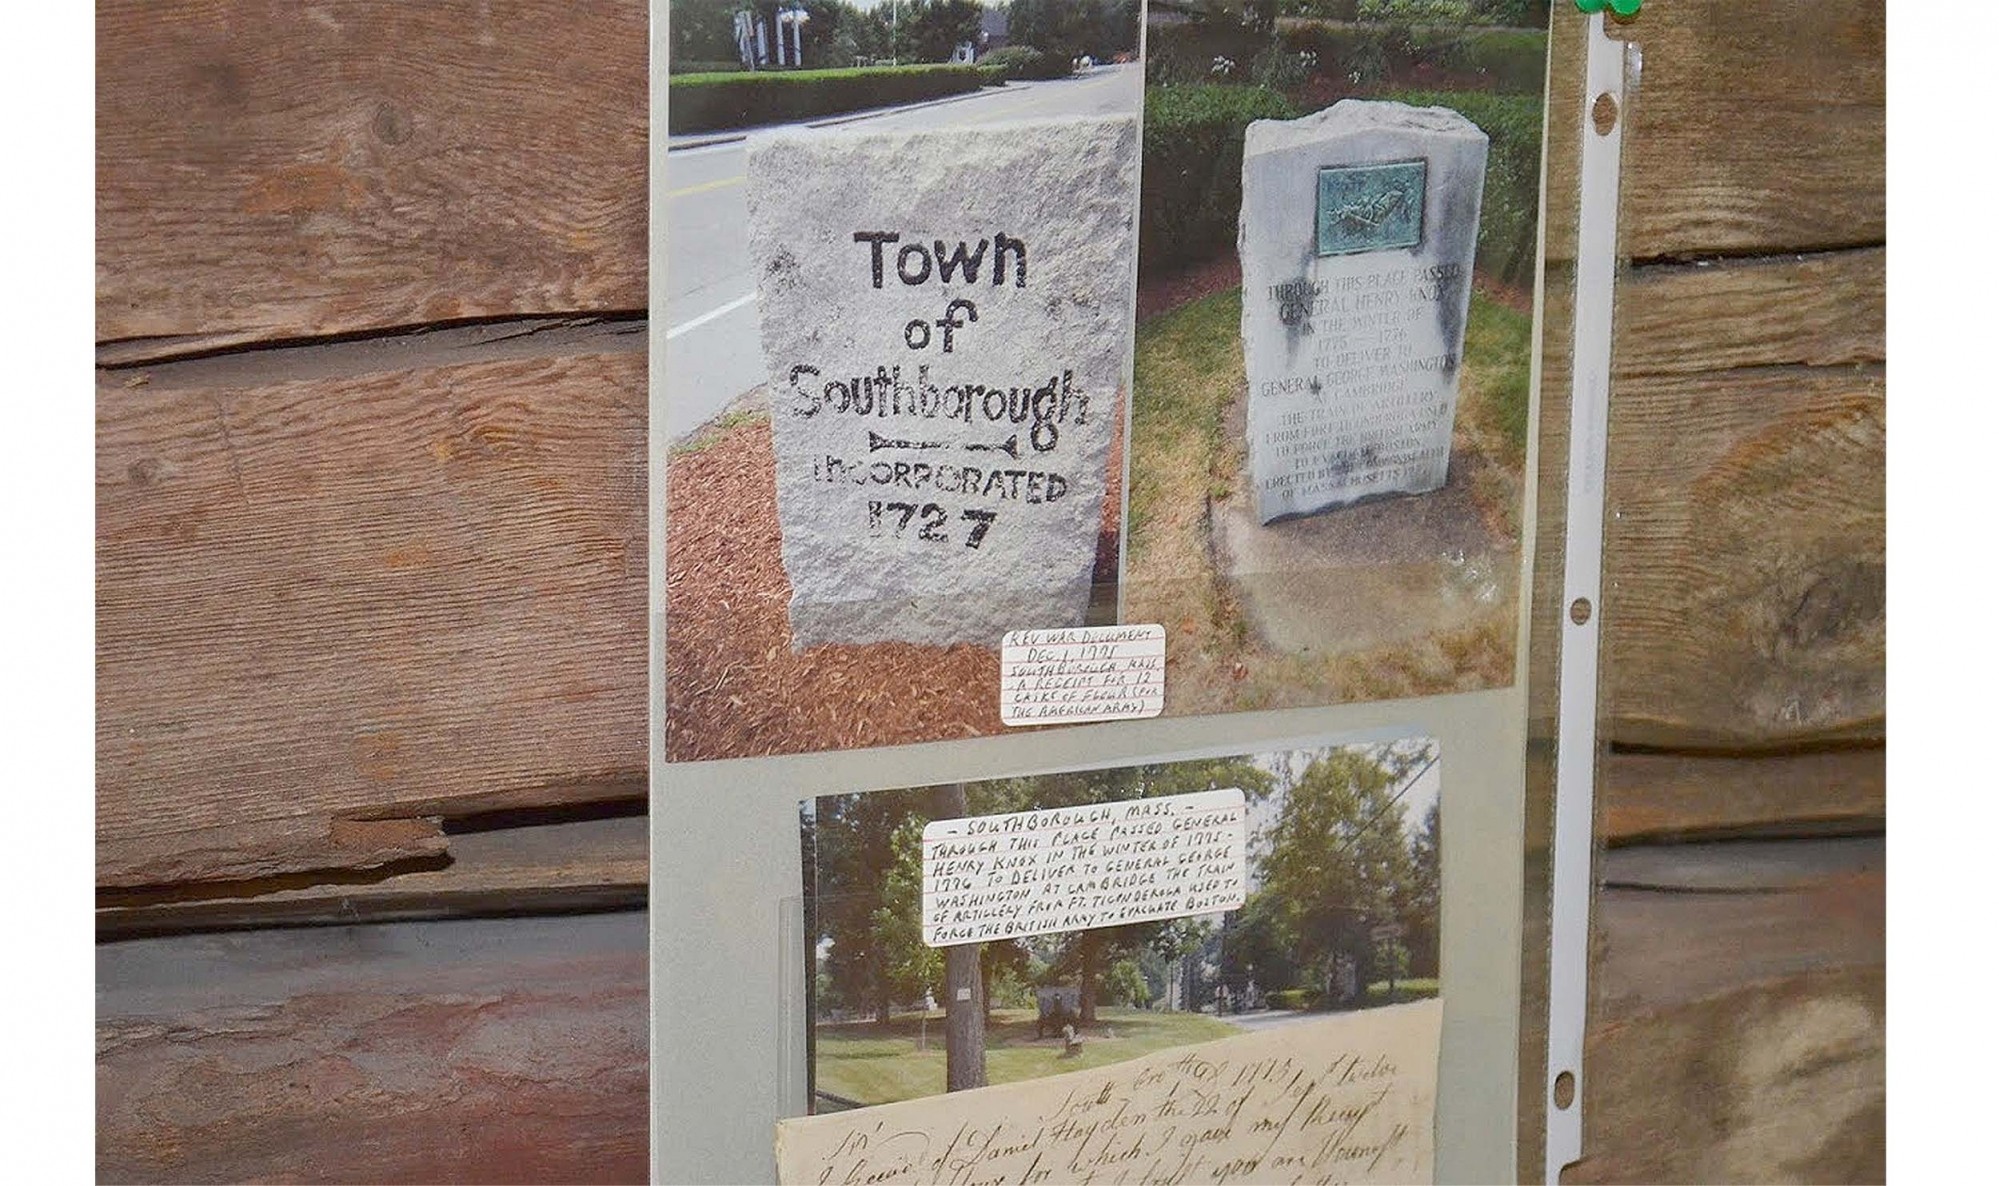 Town
of
Southborough
INCORPORATED
1727
THROUGH THIS PLACE PASSED
GENERAL HENRY KNOX
IN THE WINTER OF
1775 - 1776
TO DELIVER TO
GENERAL GEORGE WASHINGTON
AT CAMBRIDGE
THE TRAIN OF ARTILLERY
FROM FORT TICONDEROGA USED
TO FORCE THE BRITISH ARMY
TO EVACUATE BOSTON
ERECTED BY THE COMMONWEALTH
OF MASSACHUSETTS
REV WAR DOCUMENT
DEC. 1, 1775
SOUTHBOROUGH, MASS
A RECEIPT FOR 12
CASKS OF FLOUR (FOR
THE AMERICAN ARMY)
- SOUTHBOROUGH, MASS. -
THROUGH THIS PLACE PASSED GENERAL
HENRY KNOX IN THE WINTER OF 1775-
1776 TO DELIVER TO GENERAL GEORGE
WASHINGTON AT CAMBRIDGE THE TRAIN
OF ARTILLERY FROM FT. TICONDEROGA USED TO
FORCE THE BRITISH ARMY TO EVACUATE BOSTON.
1775
Sir
of Daniel Hayden the 22 of Sept twelve
for which I gave my Receipt
you are